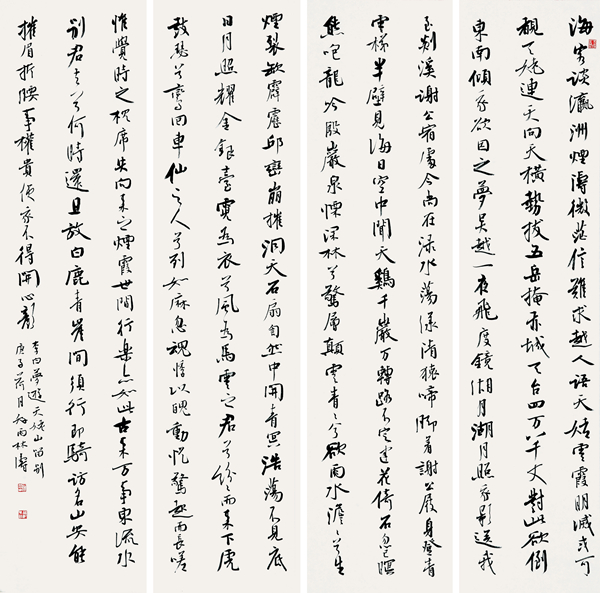 海客談瀛洲煙濤微茫信難求越人語天姥雲霞明滅或可
覩天姥連天向天橫勢拔五岳掩赤城天台四萬八千丈對此欲倒
東南傾我欲因之夢吳越一夜飛度鏡湖月湖月照我影送我
至剡溪謝公宿處今尚在淥水蕩漾清猿啼脚著謝公屐身登青
雲梯半壁見海日空中聞天雞千巖萬轉路不定迷花倚石忽已暝
熊咆龍吟殷巖泉慄深林兮驚層巔雲青青兮欲雨水澹澹兮生
煙裂缺霹靂邱巒崩摧洞天石扇訇然中開青冥浩蕩不見底
日月照耀金銀臺霓為衣兮風為馬雲之君兮紛紛而來下虎
鼓瑟兮鸞回車仙之人兮列如麻忽魂悸以魄動怳驚起而長嗟
惟覺時之枕席失向來之煙霞世間行樂亦如此古來萬事東流水
別君去兮何時還且放白鹿青崖間須行即騎訪名山安能
摧眉折腰事權貴使我不得開心顏
李白夢遊天姥山留別
庚子荷月雨林濤